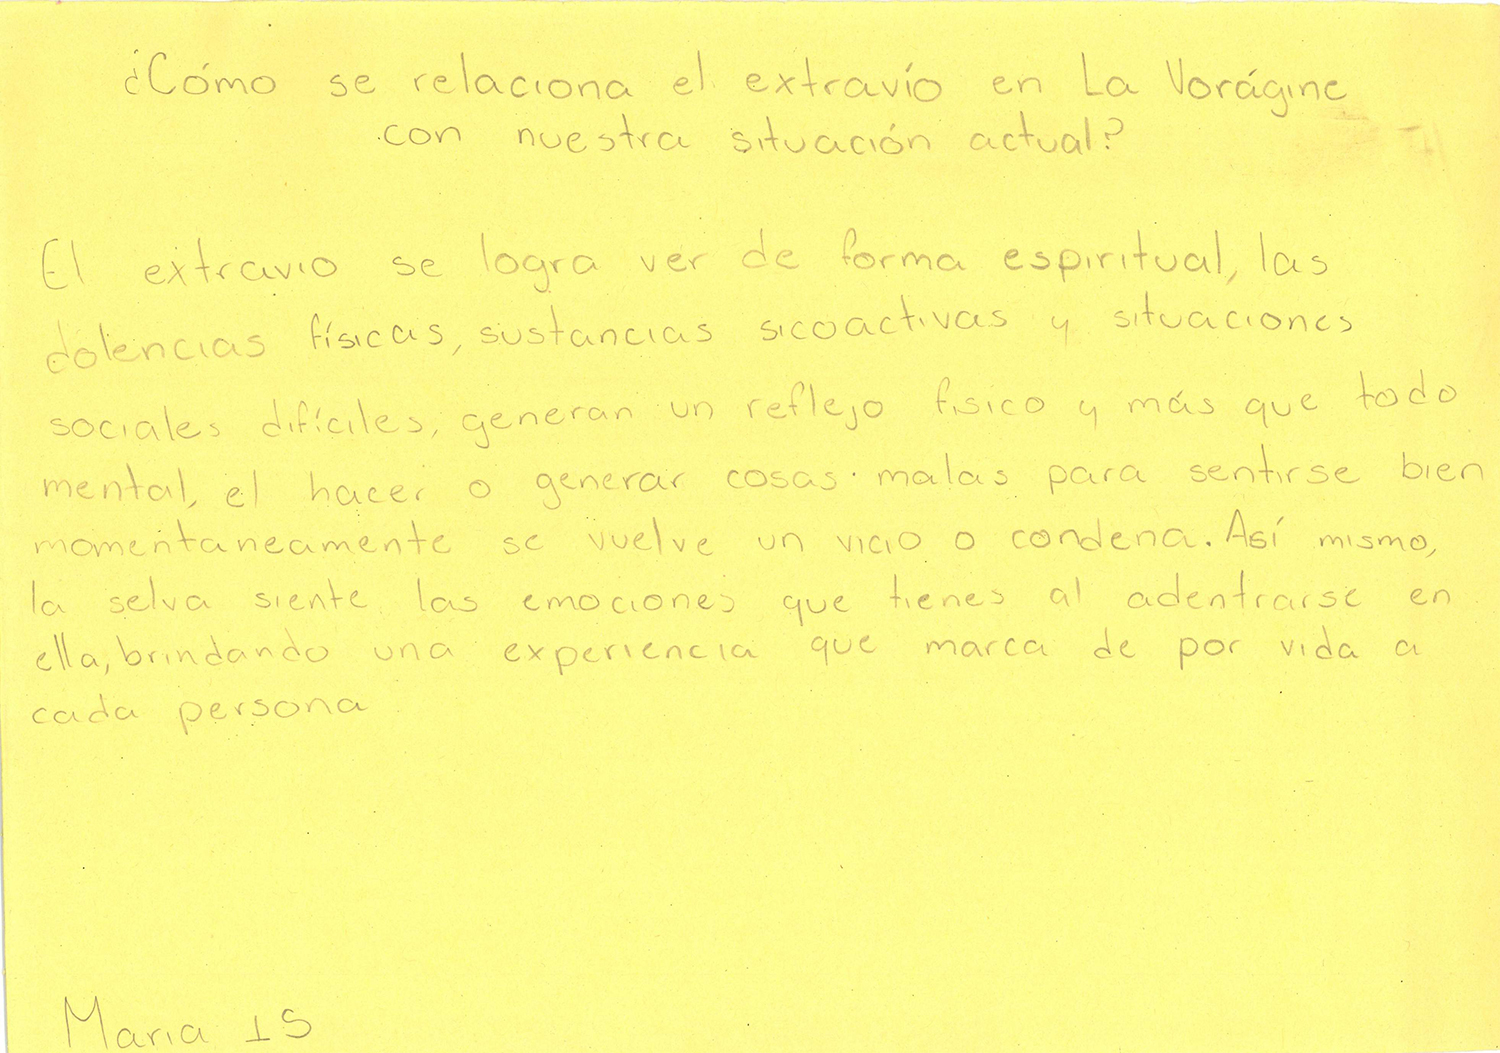 ¿Cómo se relaciona el extravío en La Vorágine
con nuestra situación actual?
El extravio se logra ver de forma espiritual, las
dolencias físicas, sustancias sicoactivas y situaciones
sociales difíciles, generan un reflejo fisico y más que todo
mental, el hacer o generar cosas malas para sentirse bien
momentaneamente se vuelve un vicio o condena. Así mismo,
la selva siente las emociones que tienes al adentrarse en
ella, brindando una experiencia que marca de por vida a
cada persona
Maria 15